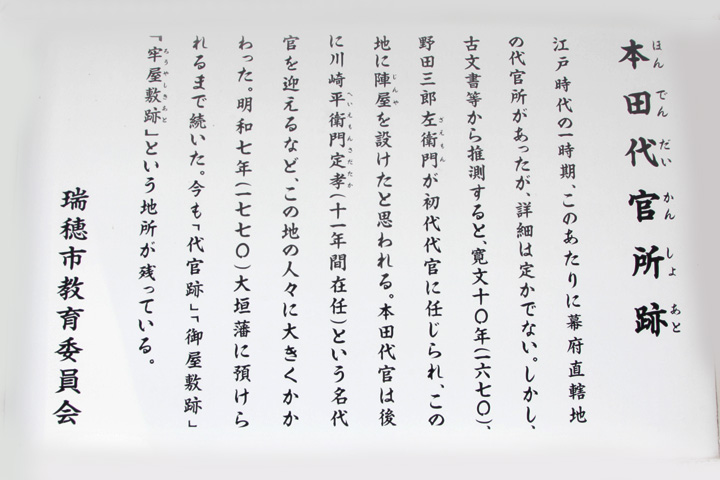 本田代官所跡
江戸時代の一時期、このあたりに幕府直轄地
の代官所があったが、詳細は定かでない。しかし、
古文書等から推測すると、寛文十〇年(一六七〇)、
野田三郎左衛門が初代代官に任じられ、この
地に陣屋を設けたと思われる。本田代官は後
に川崎平衛門定孝(十一年間在任)という名代
官を迎えるなど、この地の人々に大きくかか
わった。明和七年(一七七〇)大垣藩に預けら
れるまで続いた。今も「代官跡」「御屋敷跡」
『牢屋敷跡」という地所が残っている。
瑞穂市教育委員会